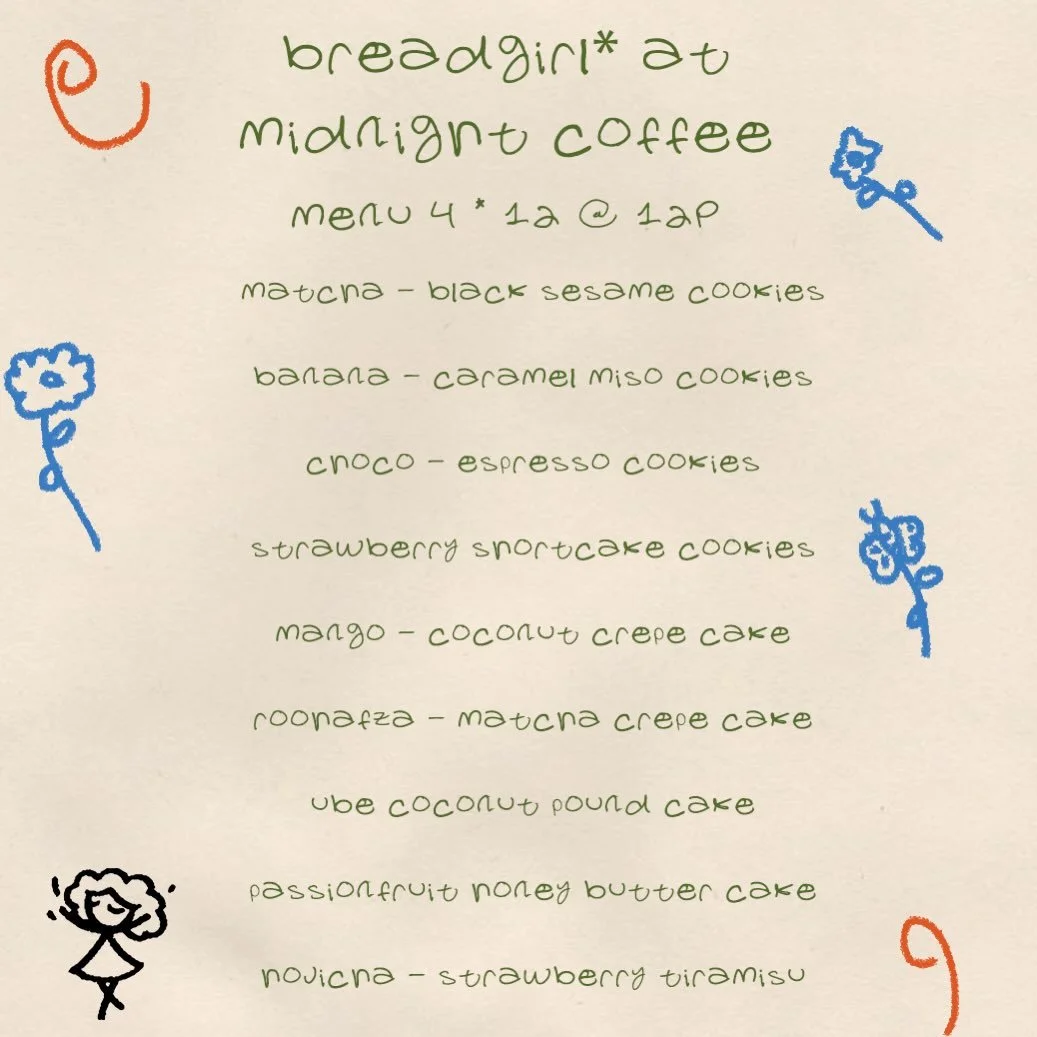 breadgirl* at
midnight coffee
menu 4 * 12 @ 12P
matcha - black sesame cookies
banana - caramel miso cookies
choco - espresso cookies
strawberry shortcake cookies
mango - coconut crepe cake
roohafza - matcha crepe cake
ube coconut pound cake
passionfruit honey butter cake
hojicha - strawberry tiramisu